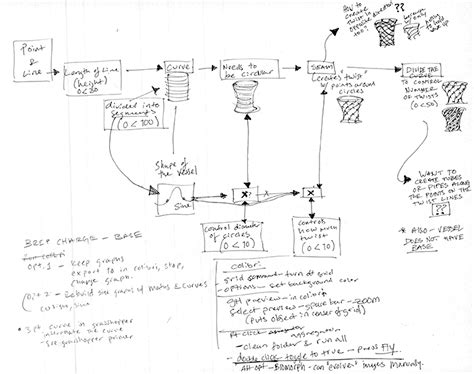 Point
&
Line
Length of Line
(height)
0<20
Curve
Needs to
be circular
SEAM
creates "twist"
w/points around
circles
How to
create
twist in
opposite direction
too?
??
DIVIDE THE
CURVE
TO CONTROL
NUMBER
OF TWISTS
(0<50)
divided into
segments
(0<100)
Shape of
the vessel
Sine
X?
X?
control diameter
of circles
(0<10)
controls
how much
twist
(0<10)
WANT TO
CREATE TUBES
OR PIPES ALONG
THE POINTS ON
THE TWIST LINES
??
* ALSO - VESSEL
DOES NOT HAVE
BASE
BREP CHARGE - BASE
opt. 1 - Keep graphs
export to in colibri, stop,
change graph.
Opt 2 - Rebuild
graphs of
& Curves
curve in grasshopper
curve
grasshopper primer
colibri
grid
- turn off grid
options - set background color
set preview - in colibri
select preview - space bar - zoom
(puts object in center of grid)
aggregation
- clean folder & run all
- double click - toggle to true - press Fly
Alt opt - Biomorph - can "evolve" images manually.